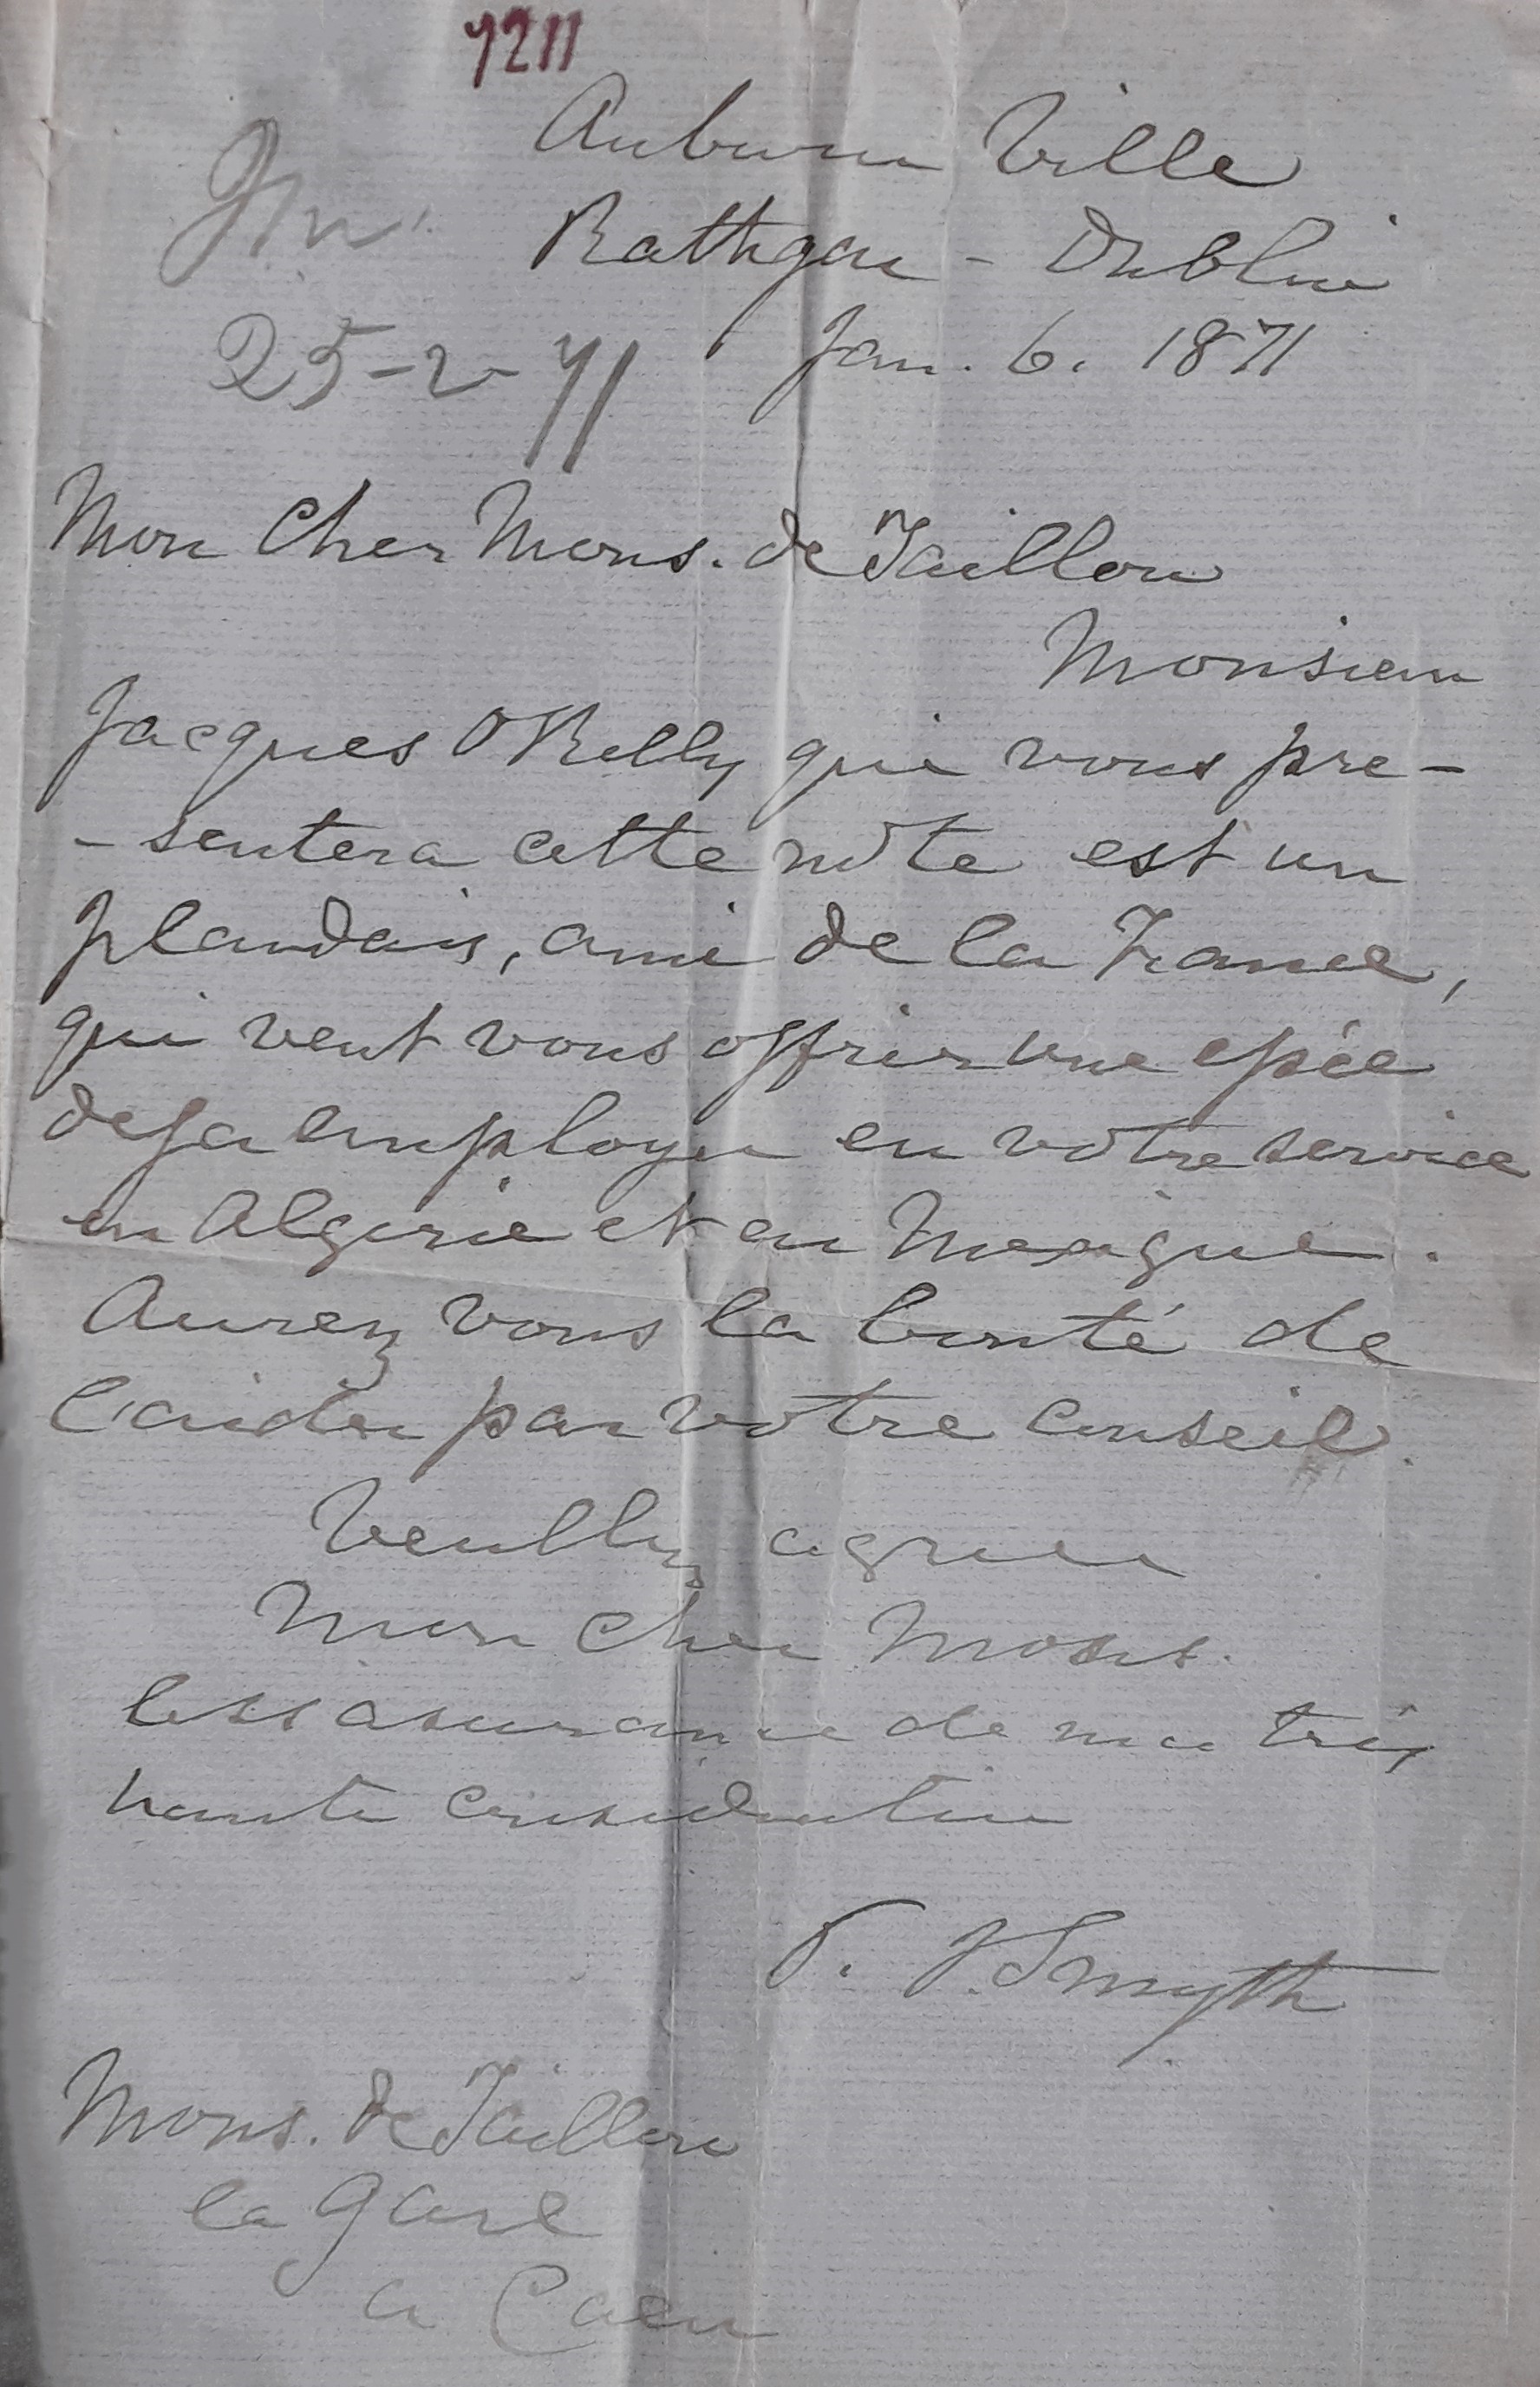 7211
Auburn Ville
Rathgar - Dublin
Jan. 6. 1871
25-2-71
Mon Cher Mons. de Taillon
Monsieur
Jacques OKelly qui vous pre-
-sentera cette note est un
Irlandais, ami de la France,
qui veut vous offrir une epée
deja employee en votre service
en Algerie et au Mexique.
Aurez vous la bonté de
l'aider par votre conseil.
Veulliez agreer
Mon cher Mons.
les assurance de ma très
haute consideration
P. J. Smyth
Mons. de Taillon
la Gare
a Caen